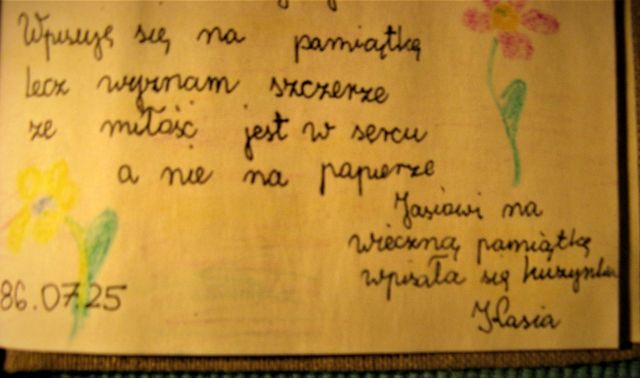 Wpisuję się na pamiątkę
lecz wyznam szczerze
ze miłość jest w sercu
a nie na papierze
Jasiowi na
wieczną pamiątkę
wpisała się kuzynka
Kasia
86.07.25